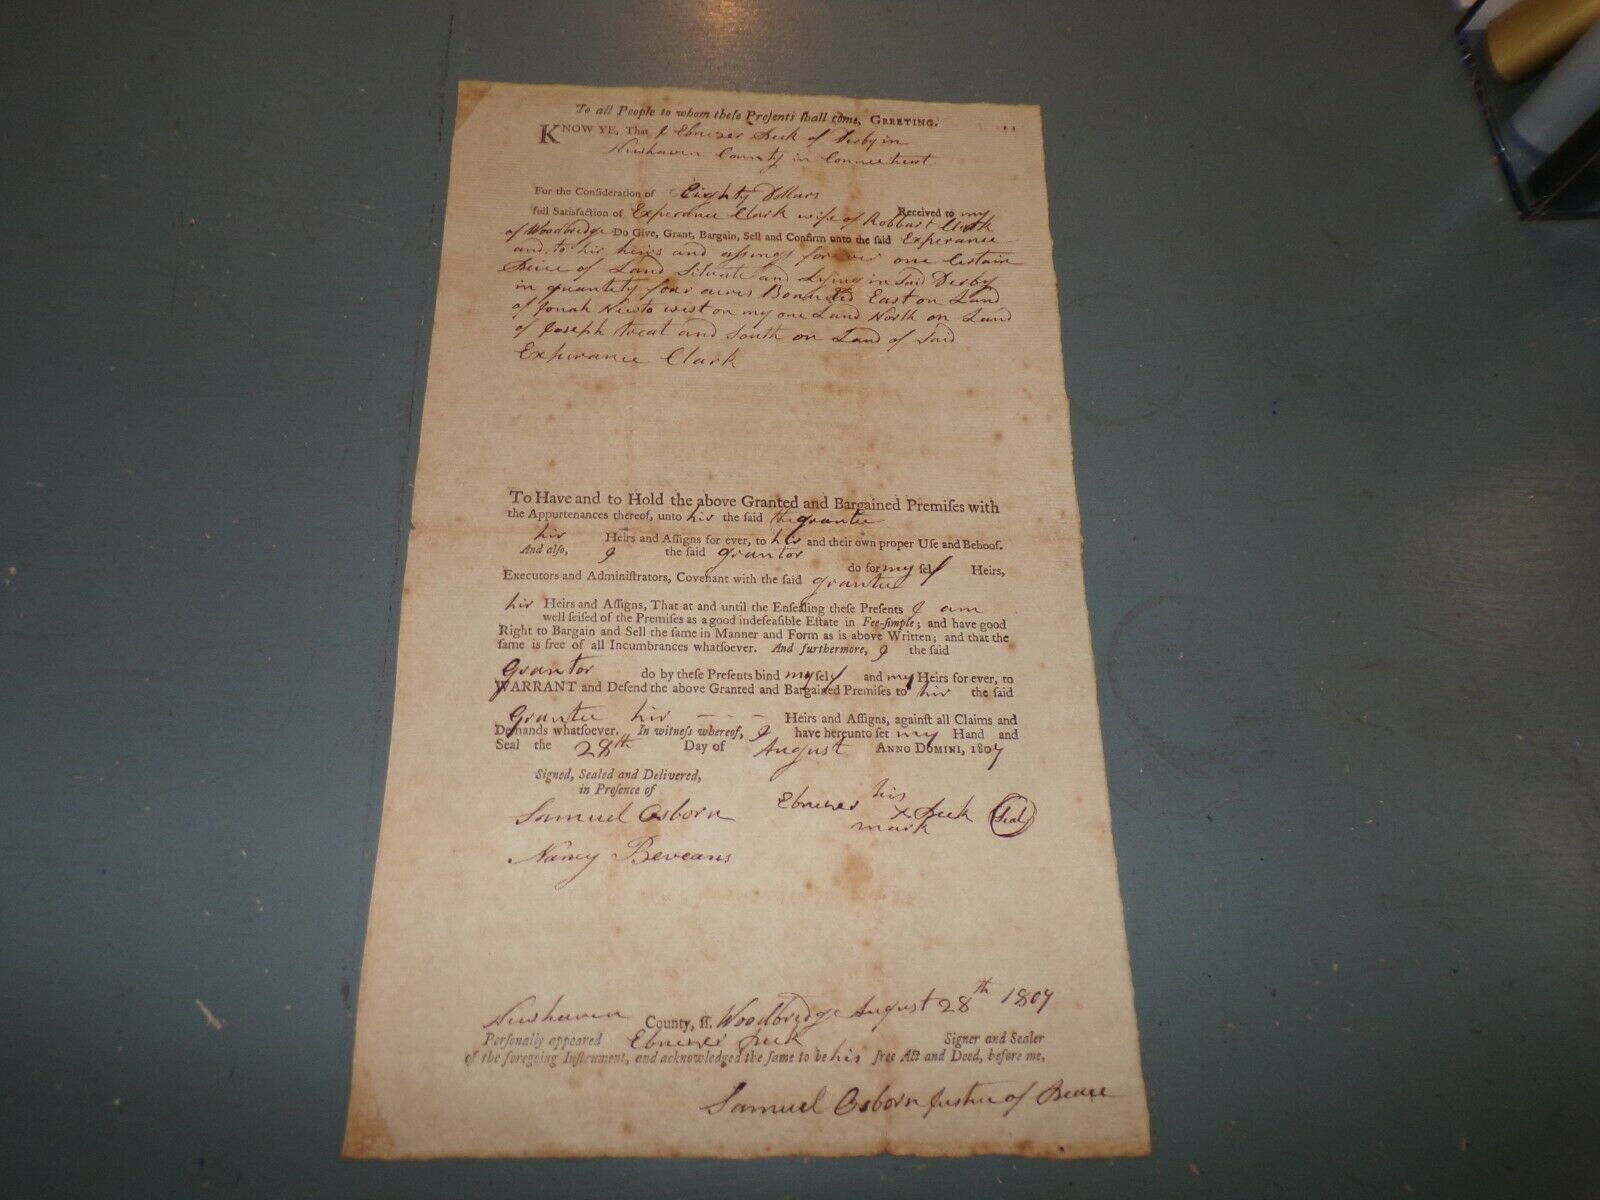 To all People to whom theſe Preſents ſhall come, GREETING.
KNOW YE, That I Ebnezer Peck of Derby in
Newhaven County in Connecticut
For the Conſideration of Eighty Dollars
Received to my
full Satisfaction of Experance Clark wife of Robbart Clark
of Woodbredge Do Give, Grant, Bargain, Sell and Confirm unto the ſaid Experance
and to hir heirs and assings forever one Certain
Peice of Land Situate and Lying in Said Derby
in quantety four acres Bounded East on Land
of Jonah Newto west on my one Land North on Land
of Joseph treat and South on Land of Said
Experance Clark
To Have and to Hold the above Granted and Bargained Premiſes with
the Appurtenances thereof, unto hir the ſaid the grantee
hir Heirs and Aſſigns for ever, to hir and their own proper Uſe and Behoof.
And alſo, I the ſaid grantor
do for my ſelf Heirs,
Executors and Adminiſtrators, Covenant with the ſaid grantee
hir Heirs and Aſſigns, That at and until the Enſealing theſe Preſents I am
well ſeiſed of the Premiſes as a good indefeaſible Eſtate in Fee-ſimple; and have good
Right to Bargain and Sell the ſame in Manner and Form as is above Written; and that the
ſame is free of all Incumbrances whatſoever. And furthermore, I the ſaid
Grantor do by theſe Preſents bind my ſelf and my Heirs for ever, to
WARRANT and Defend the above Granted and Bargained Premiſes to hir the ſaid
Grantee hir - - - Heirs and Aſſigns, againſt all Claims and
Demands whatſoever. In witneſs whereof, I have hereunto ſet my Hand and
Seal the 28th Day of August ANNO DOMINI, 1807
Signed, Sealed and Delivered,
in Preſence of
Samuel Osborn
Ebnezer his
X Peck Seal
mark
Nancy Beveans
Newhaven County, ſſ. Woodbredge August 28th 1807
Perſonally appeared Ebnezer Peck Signer and Sealer
of the foregoing Inſtrument, and acknowledged the ſame to be his free Act and Deed, before me,
Samuel Osborn Justice of Peace